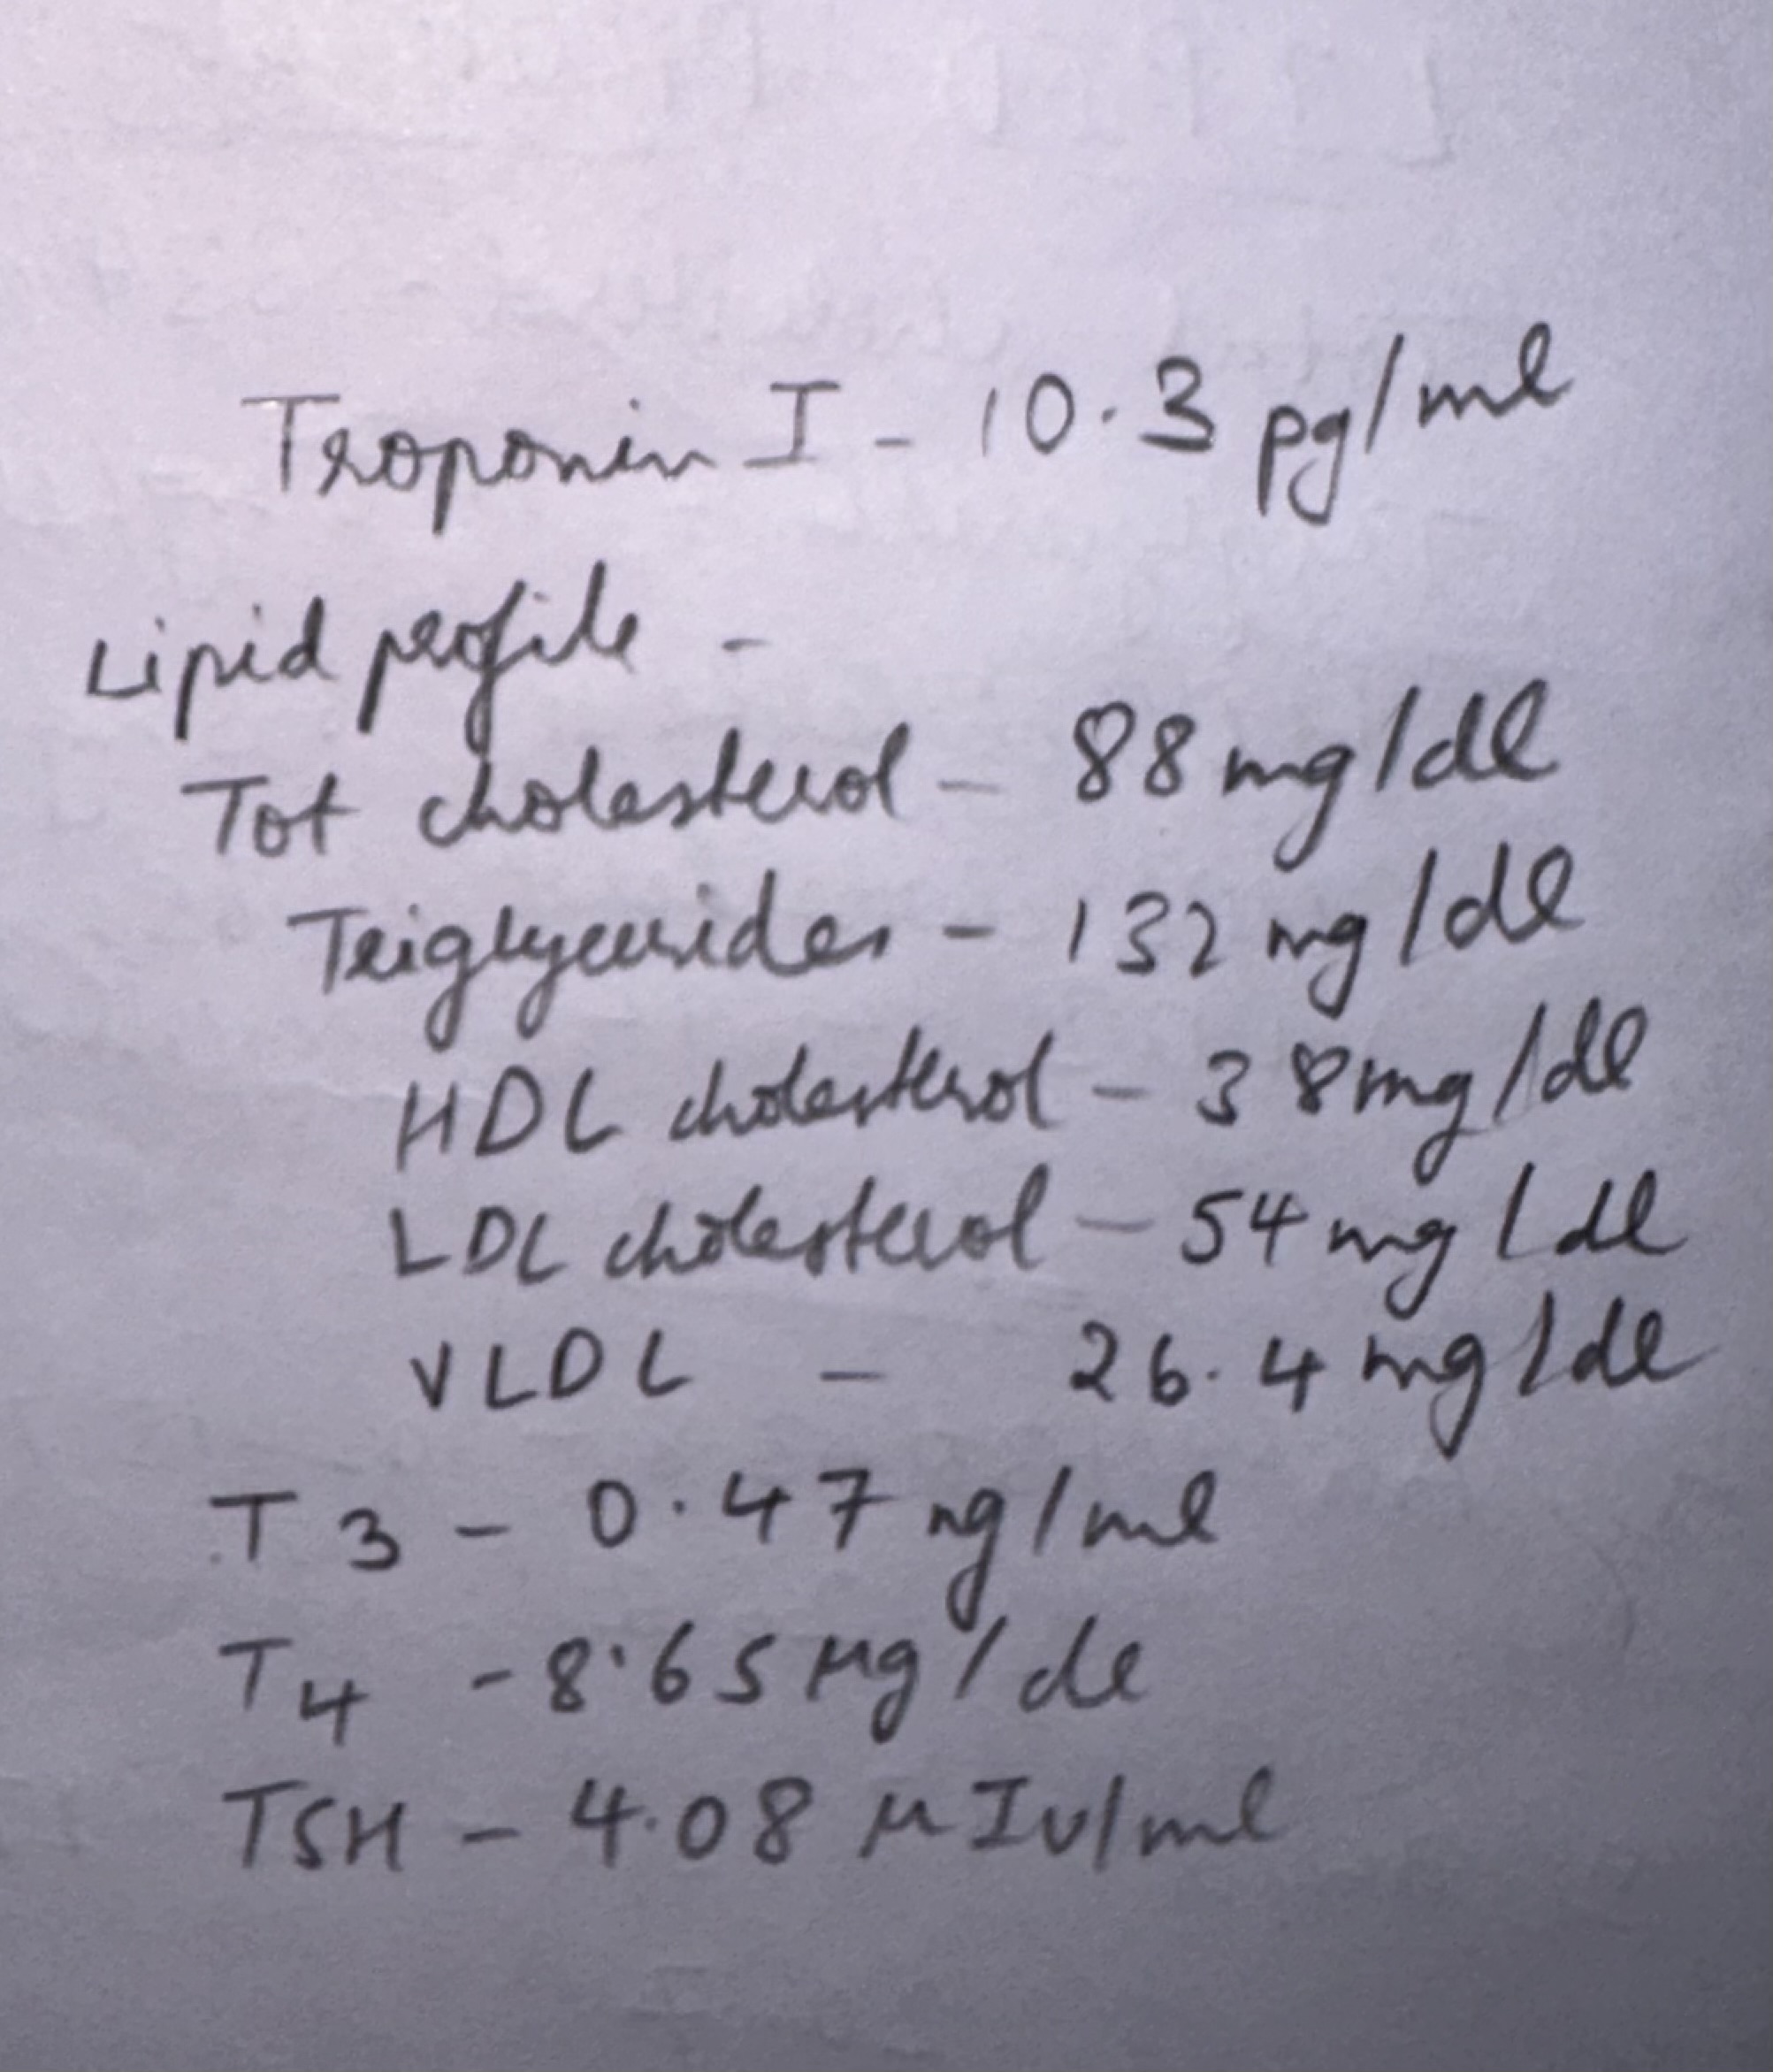 Troponin I - 10.3 pg/ml
Lipid profile -
Tot cholesterol - 88 mg/dl
Triglycerides - 132 mg/dl
HDL cholesterol - 38 mg/dl
LDL cholesterol - 54 mg/dl
VLDL - 26.4 mg/dl
T3 - 0.47 ng/ml
T4 - 8.65 µg/dl
TSH - 4.08 µIU/ml